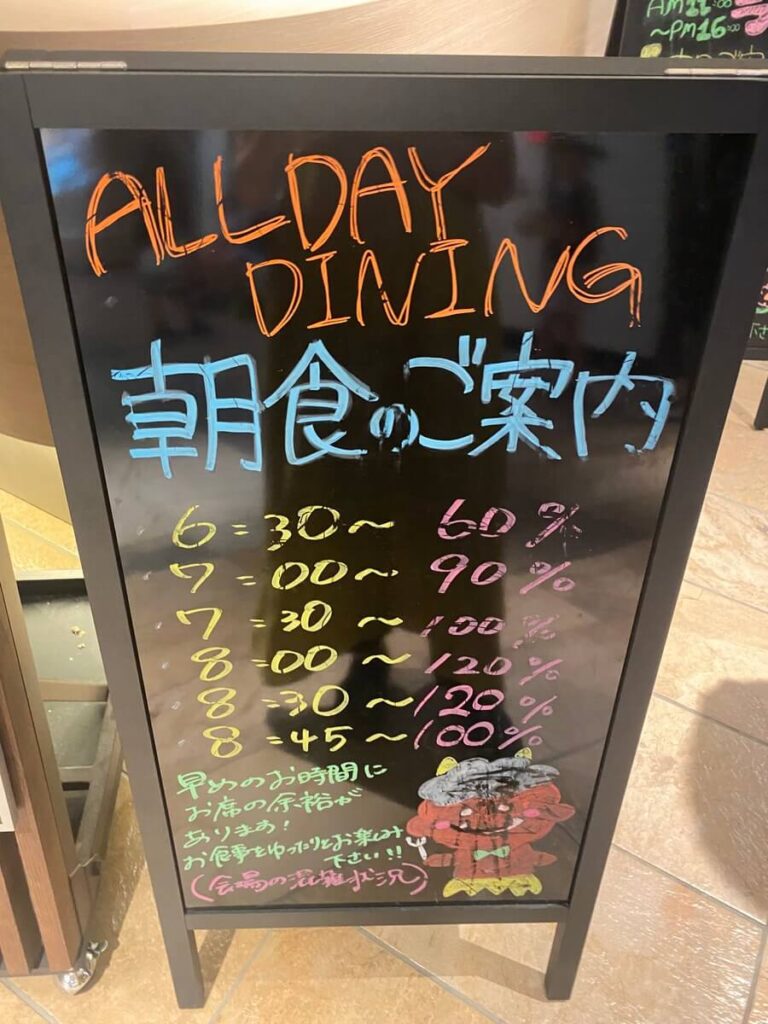 AM11:00
~PM16:00
ALLDAY
DINING
朝食のご案内
6:30~ 60%
7:00~ 90%
7:30~ 100%
8:00~ 120%
8:30~ 120%
8:45~ 100%
早めのお時間に
お席の余裕が
あります!
お食事をゆったりとお楽しみ
下さい!!
(会場の混雑状況)